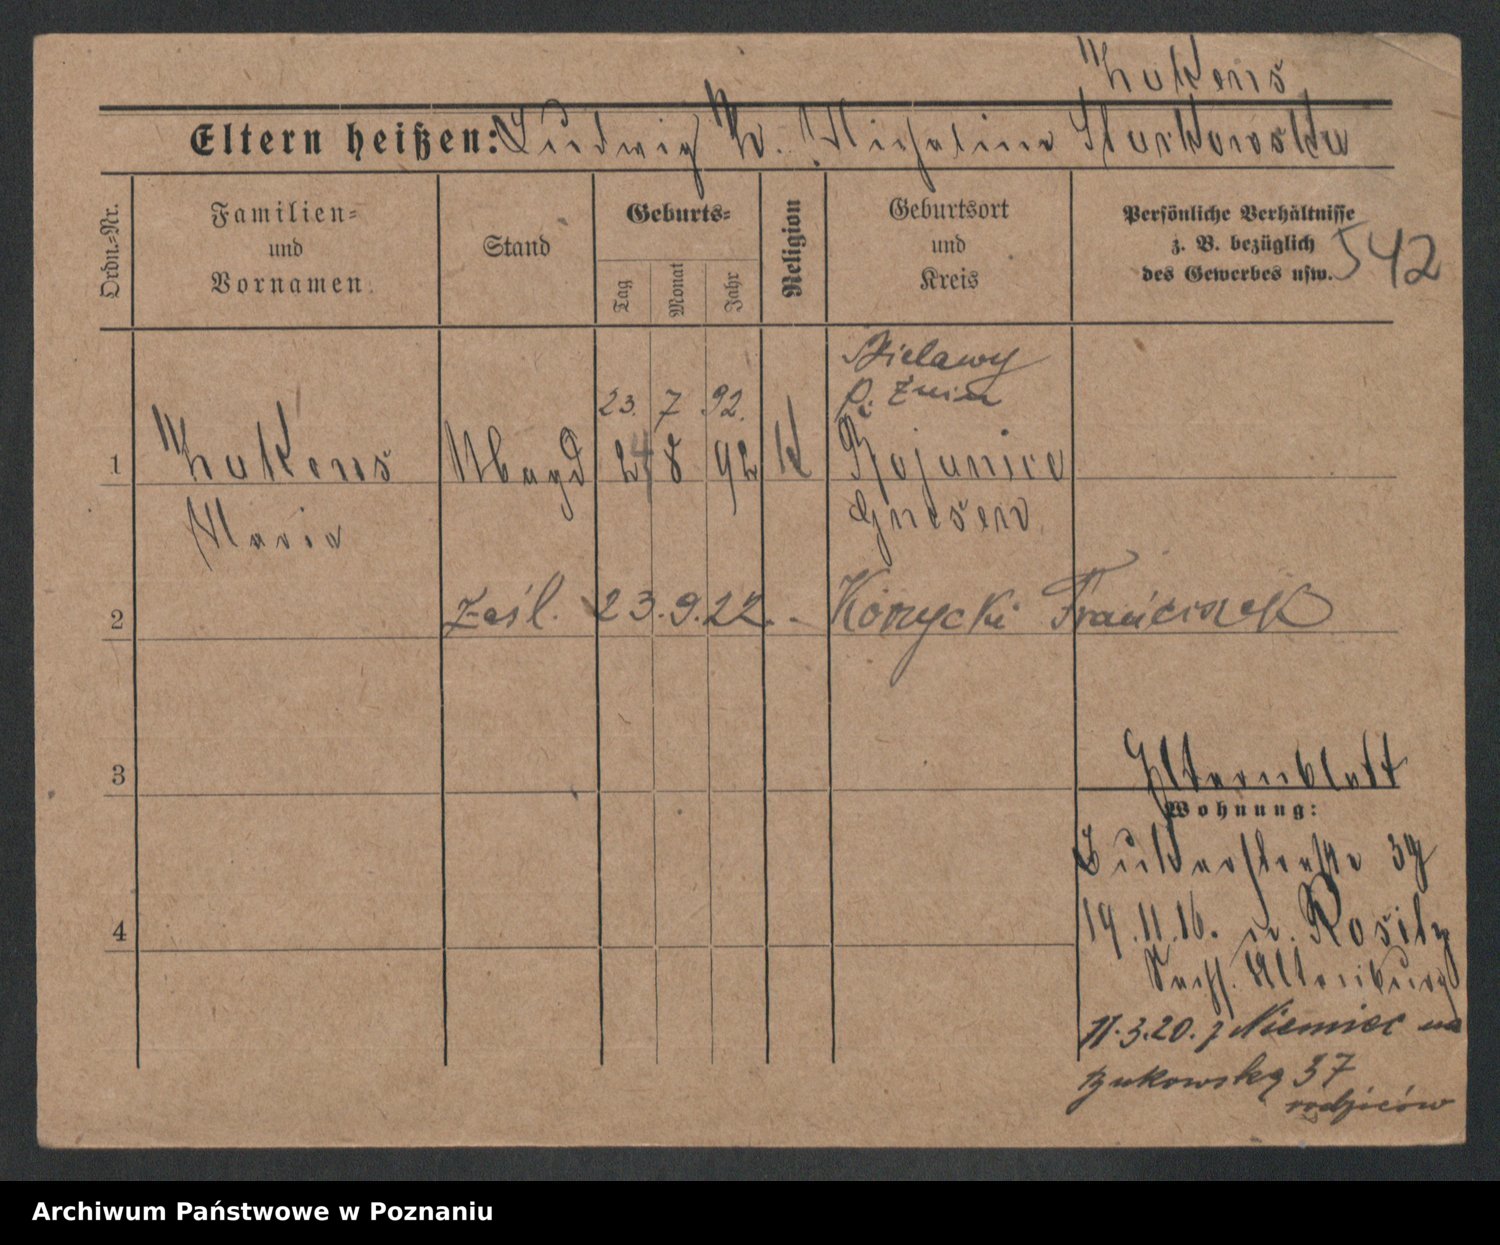 Eltern heißen: Ludwig W. Michalina
Ordn.-Nr.
Familien-
und
Vornamen
Stand
Geburts-
Tag
Monat
Jahr
Religion
Geburtsort
und
Kreis
Persönliche Verhältnisse
z. B. bezüglich
des Gewerbes usw.
542
Bielawy
p. Żnin
23. 7 92.
1
Magd 24 8 92 K
Gnesen
Maria
2
zaśl. 23.9.22. - Franciszek
3
Elternblatt
Wohnung:
Bukerstraße 39
4
19.11.16. n. Rositz
Sachs. Altenburg
11.3.20. z Niemiec na
Bukowską 37
rodziców
Archiwum Państwowe w Poznaniu